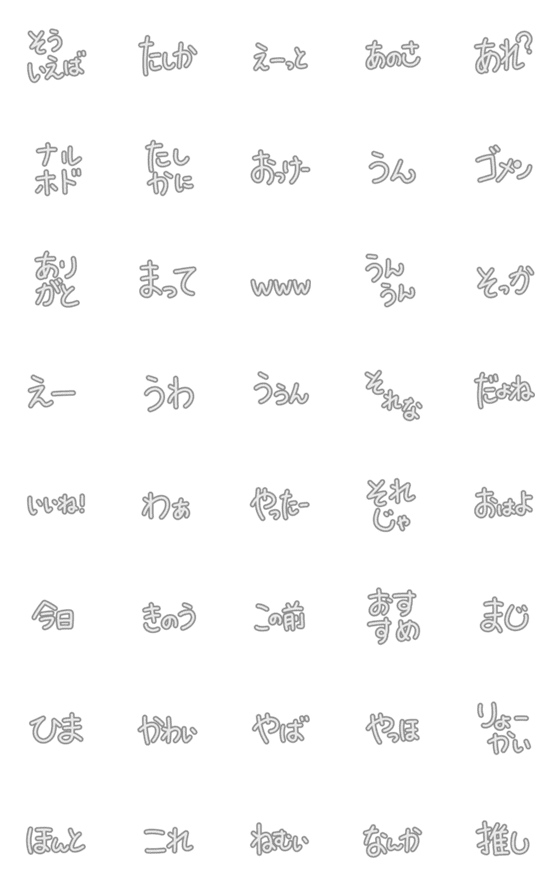 そう
いえば
たしか
えーっと
あのさ
あれ?
ナル
ホド
たし
かに
おっけー
うん
ゴメン
あり
がと
まって
www
うん
うん
そっか
えー
うわ
ううん
そ
れ
な
だよね
いいね!
わぁ
やったー
それ
じゃ
おはよ
今日
きのう
この前
おす
すめ
まじ
ひま
かわぃ
やば
やっほ
りょー
かい
ほんと
これ
ねむい
なんか
推し